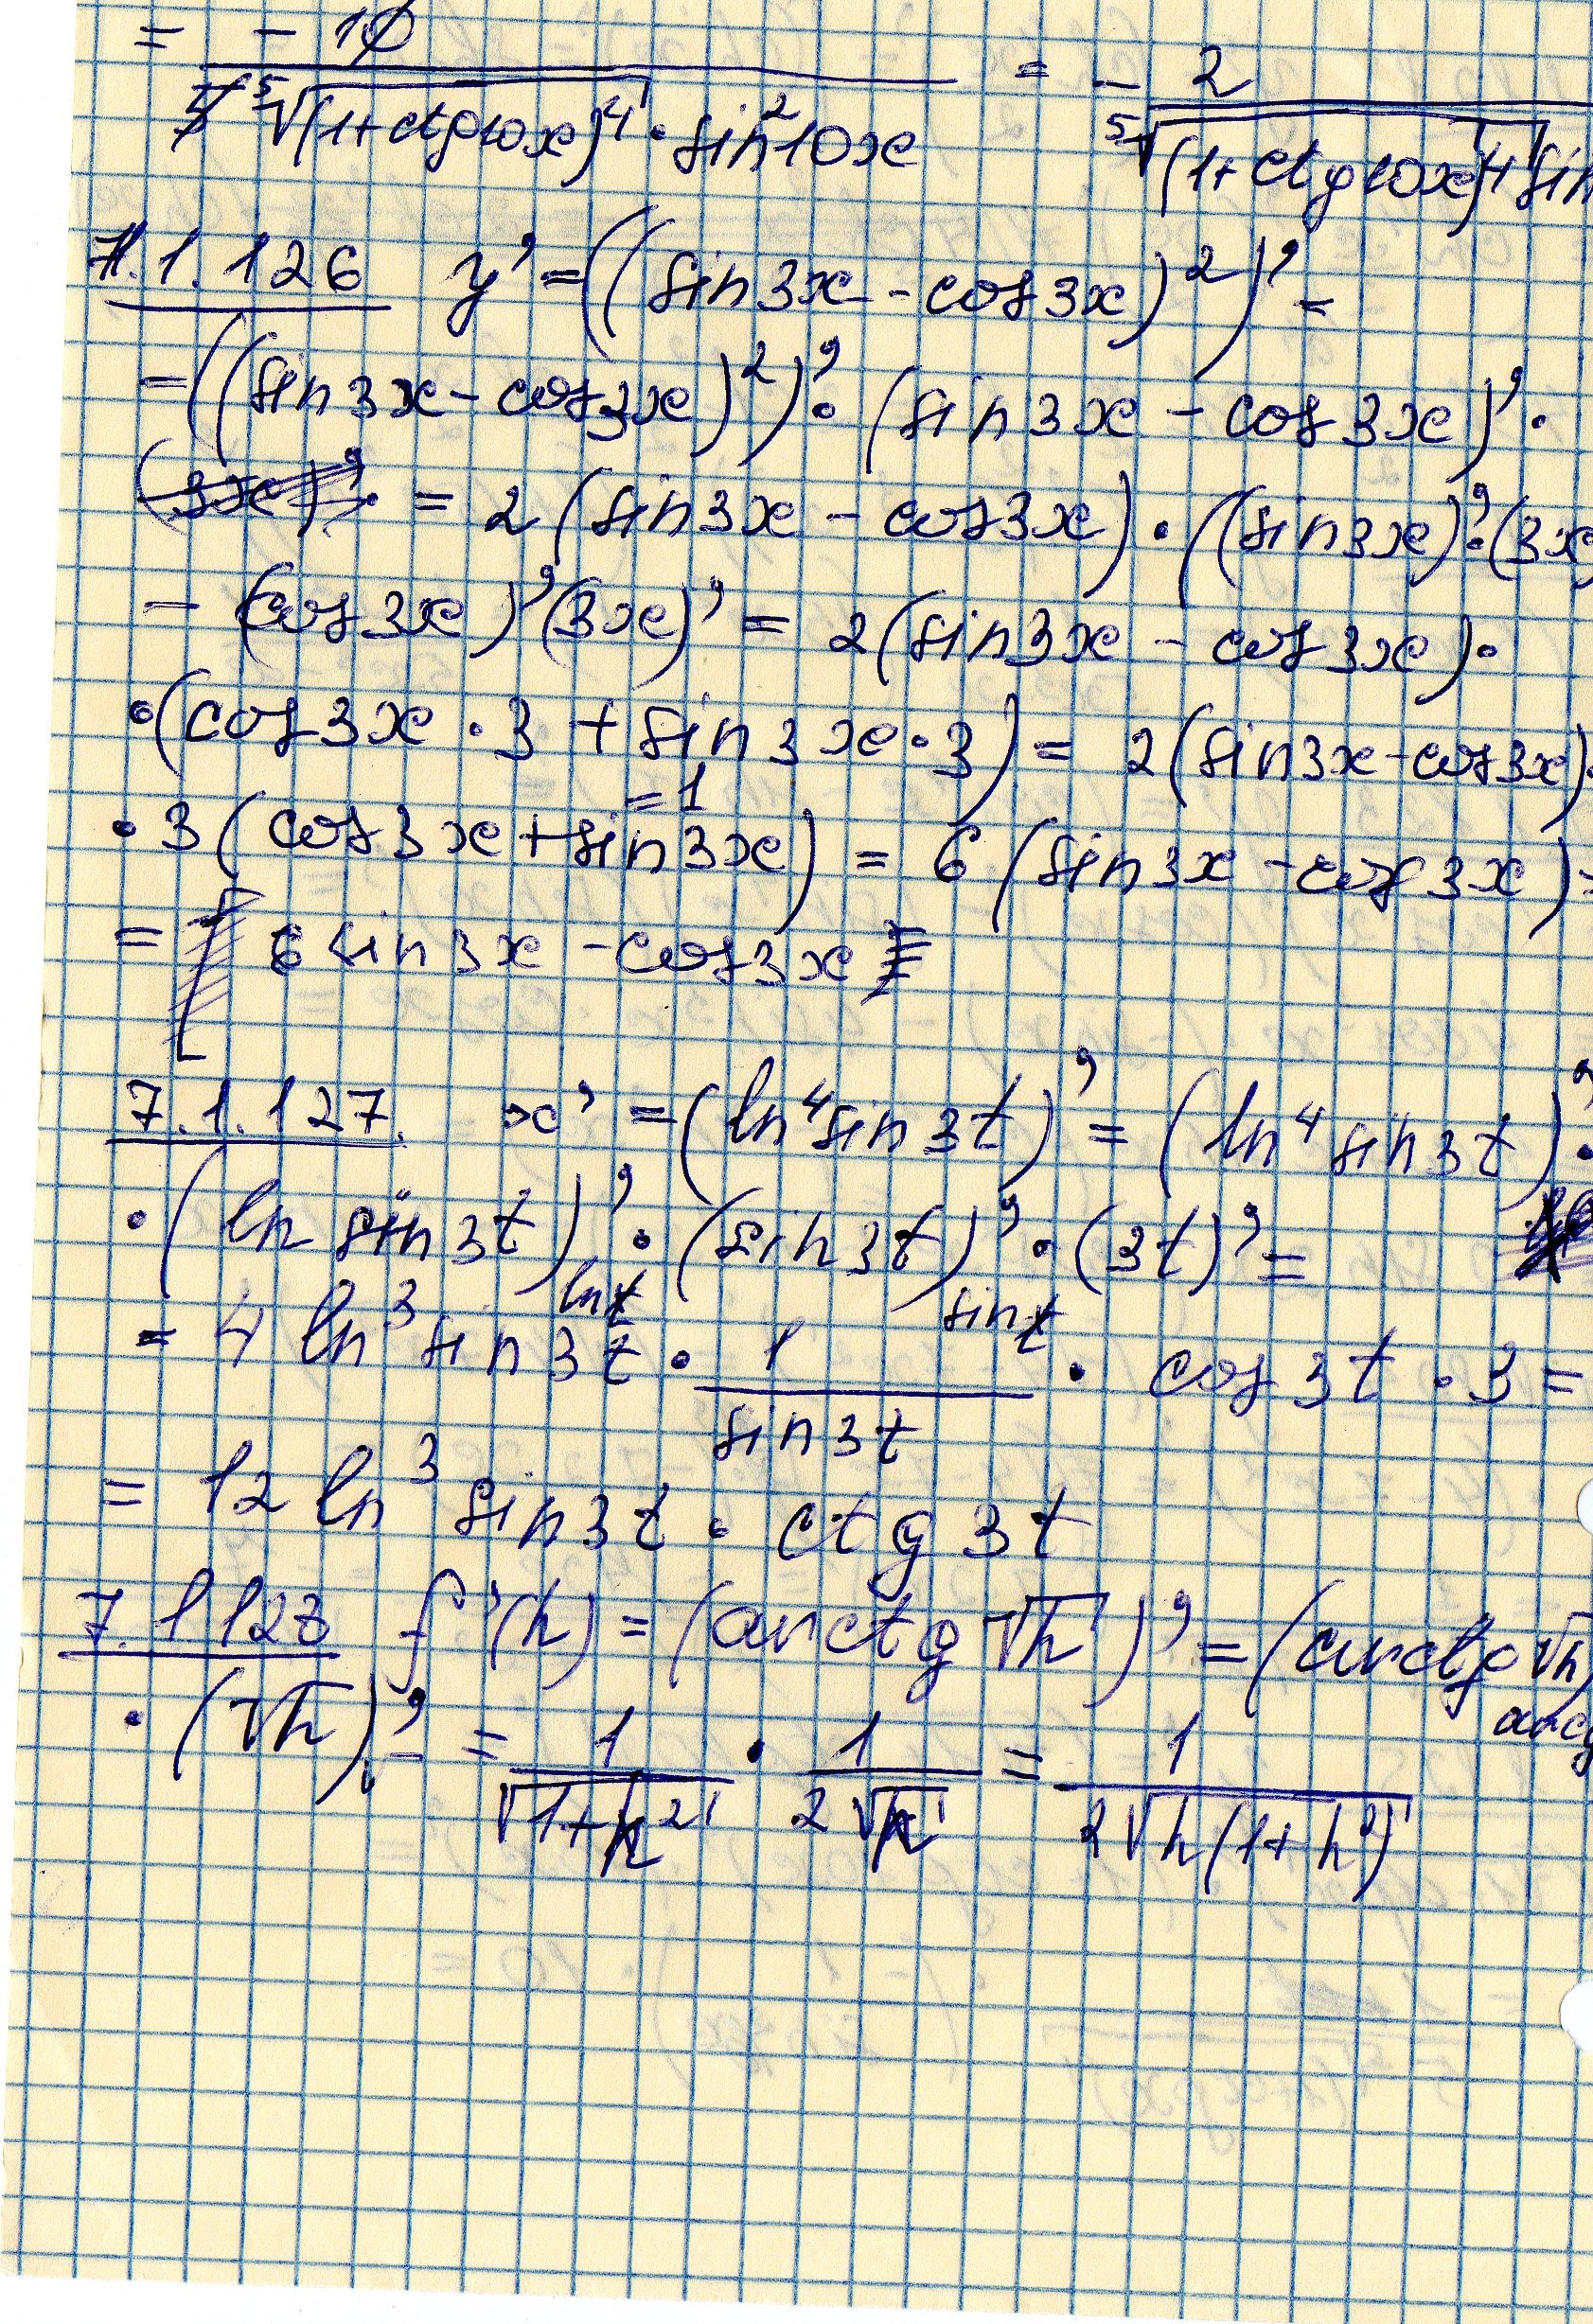 = -10 / 5 ⁵√(1+ctg10x)⁴ · sin²10x = - 2 / ⁵√(1+ctg10x)⁴ sin
7.1.126 y' = ((sin3x - cos3x)²)' =
= ((sin3x - cos3x)²)' · (sin3x - cos3x)' ·
(3x)' · = 2(sin3x - cos3x) · ((sin3x)' · (3x)
- (cos3x)'(3x)' = 2(sin3x - cos3x) ·
· (cos3x · 3 + sin3x · 3) = 2(sin3x - cos3x) ·
=1
· 3(cos3x + sin3x) = 6(sin3x - cos3x) =
= [ 6 sin3x - cos3x
7.1.127. x' = (ln⁴sin3t)' = (ln⁴ sin3t)' ·
· (ln sin3t)' · (sin3t)' · (3t)' =
ln t sin t
= 4 ln³ sin3t · 1 / sin3t · cos3t · 3 =
= 12 ln³ sin3t · ctg3t
7.1.128 f'(h) = (arctg √h)' = (arctg √h)
· (√h)' = 1 / √1+h² · 1 / 2√h = 1 / 2√h(1+h²)